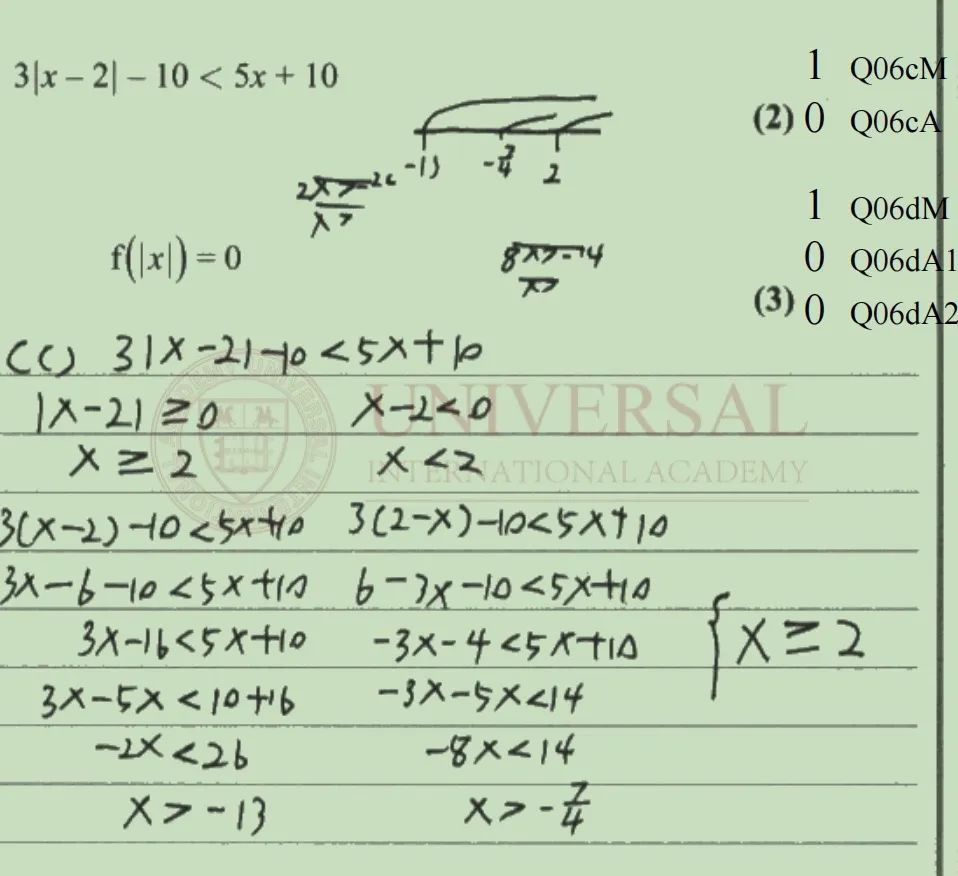 3|x − 2| − 10 < 5x + 10
1 Q06cM
(2) 0 Q06cA
-13 -7/4 2
2x>-26
x>
1 Q06dM
f(|x|) = 0
8x>-14
x>
0 Q06dA1
(3) 0 Q06dA2
(C) 3|x-2|-10<5x+10
|x-2|≥0 x-2<0
UNIVERSAL
x≥2 x<2
INTERNATIONAL ACADEMY
3(x-2)-10<5x+10 3(2-x)-10<5x+10
3x-6-10<5x+10 6-3x-10<5x+10
3x-16<5x+10 -3x-4<5x+10 { x≥2
3x-5x<10+16 -3x-5x<14
-2x<26 -8x<14
x>-13 x>-7/4